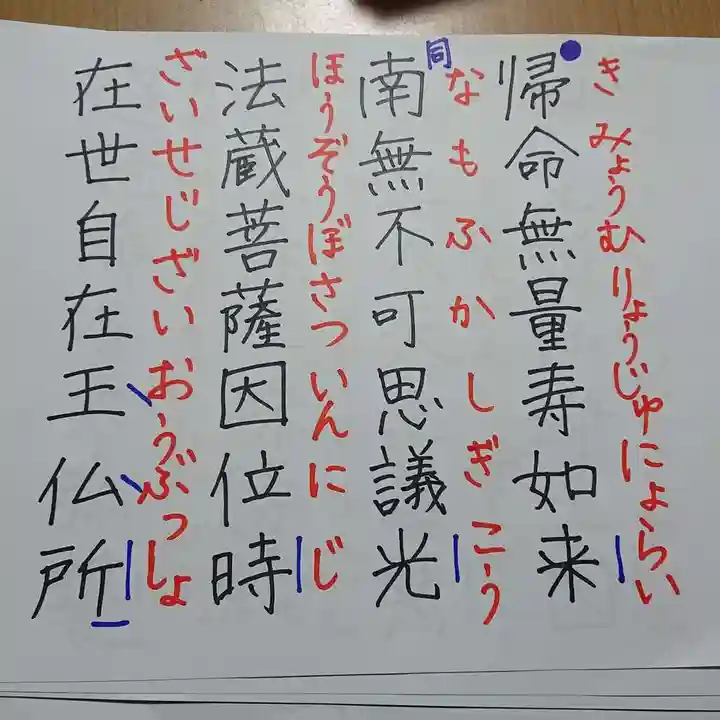 きみょうむりょうじゅにょらい
帰命無量寿如来
なもふかしぎこう
同
南無不可思議光
ほうぞうぼさついんにじ
法蔵菩薩因位時
ざいせじざいおうぶっしょ
在世自在王仏所